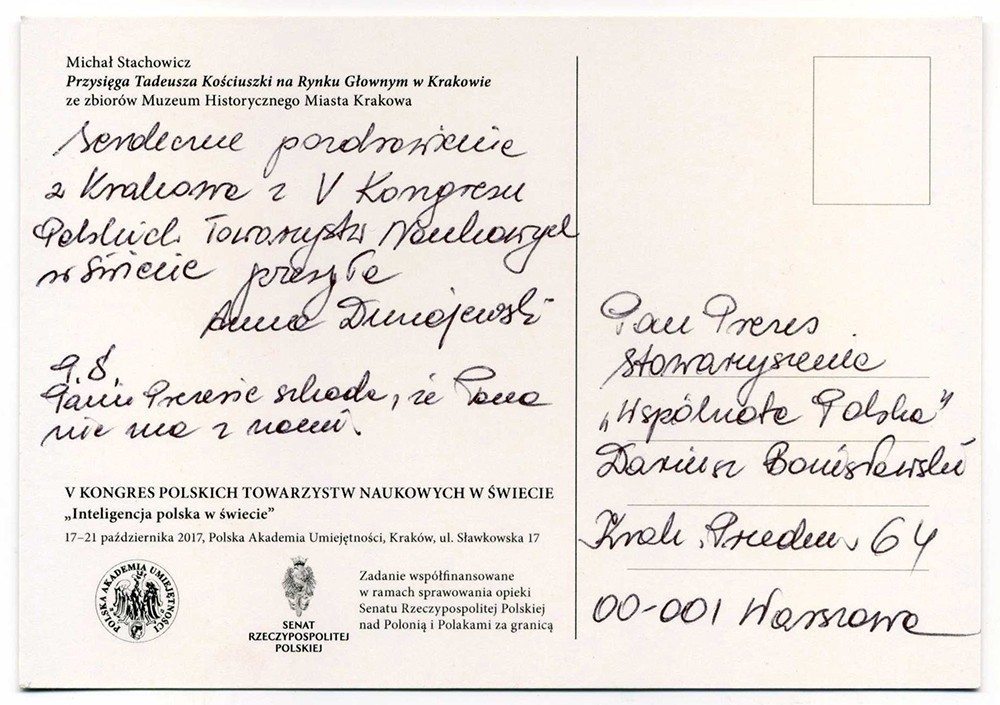 Michał Stachowicz
Przysięga Tadeusza Kościuszki na Rynku Głownym w Krakowie
ze zbiorów Muzeum Historycznego Miasta Krakowa
Serdeczne pozdrowienie
z Krakowa z V Kongresu
Polskich Towarzystw Naukowych
w Świecie przesyła
Anna Dunajewski
P.S.
Panie Prezesie szkoda, że Pana
nie ma z nami.
V KONGRES POLSKICH TOWARZYSTW NAUKOWYCH W ŚWIECIE
„Inteligencja polska w świecie”
17–21 października 2017, Polska Akademia Umiejętności, Kraków, ul. Sławkowska 17
POLSKA AKADEMIA UMIEJĘTNOŚCI
SENAT
RZECZYPOSPOLITEJ
POLSKIEJ
Zadanie współfinansowane
w ramach sprawowania opieki
Senatu Rzeczypospolitej Polskiej
nad Polonią i Polakami za granicą
Pan Prezes
Stowarzyszenie
„Wspólnota Polska”
Dariusz Bonisławski
Krak. Przedm. 64
00-001 Warszawa